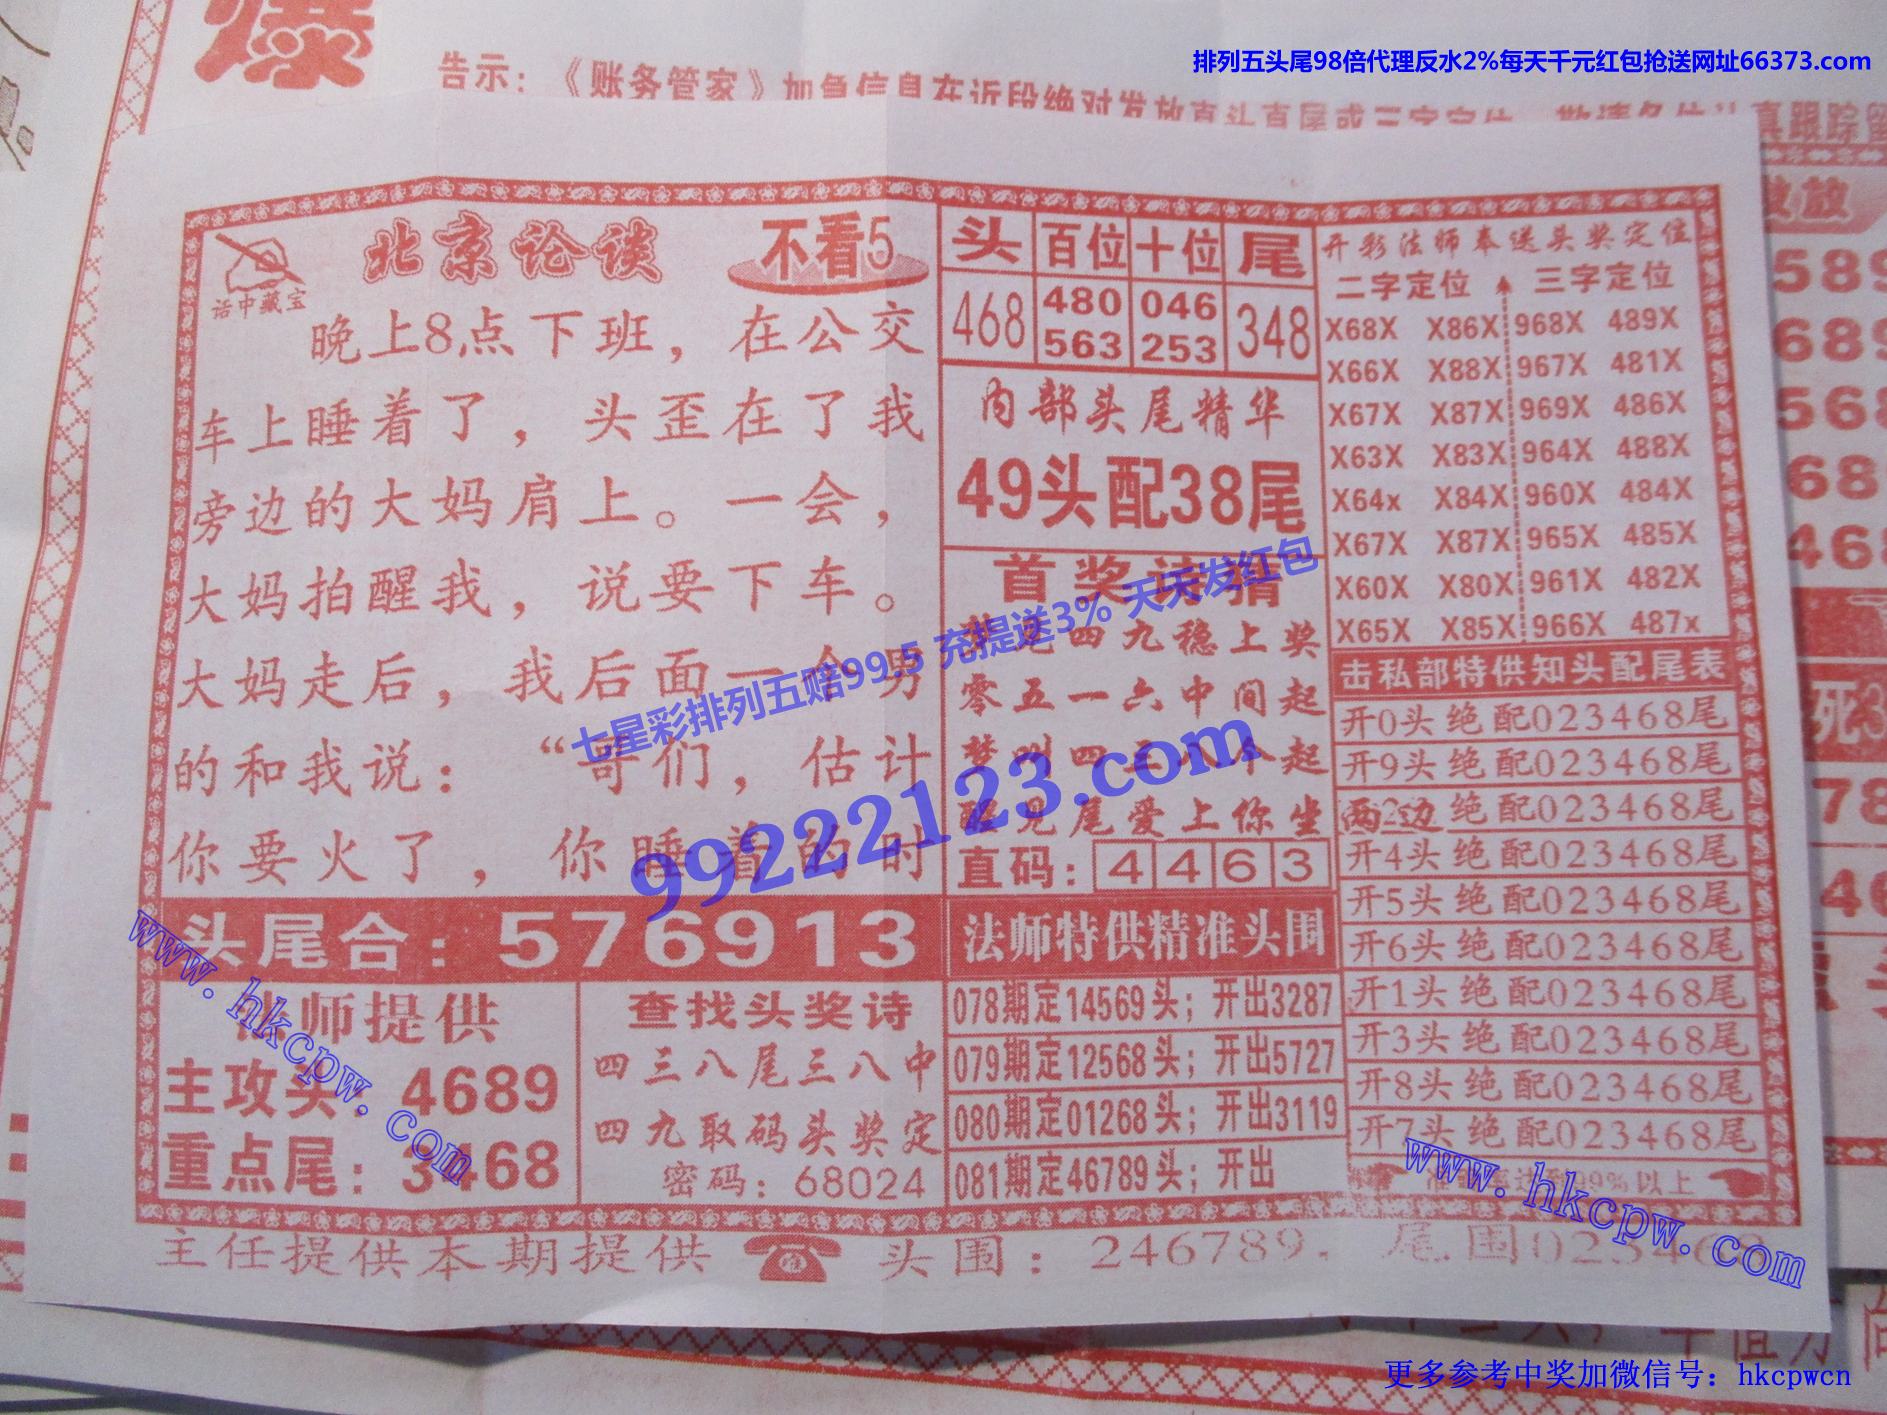 爆
排列五头尾98倍代理反水2%每天千元红包抢送网址66373.com
告示：《账务管家》加急信息在近段绝对发放直头直尾或三字定位
真跟踪留
话中藏宝
北京论谈
不看5
晚上8点下班，在公交
车上睡着了，头歪在了我
旁边的大妈肩上。一会，
大妈拍醒我，说要下车。
大妈走后，我后面一个男
的和我说：“哥们，估计
你要火了，你睡着的时
头尾合：576913
法师提供
主攻头：4689
重点尾：3468
查找头奖诗
四三八尾三八中
四九取码头奖定
密码：68024
头 百位 十位 尾
468 480 046 348
563 253
内部头尾精华
49头配38尾
首奖诗猜
四九稳上奖
零五一六中间起
梦 四三八个起
醒见尾爱上你坐
直码：4 4 6 3
法师特供精准头围
078期定14569头；开出3287
079期定12568头；开出5727
080期定01268头；开出3119
081期定46789头；开出
开彩法师奉送头奖定位
二字定位 三字定位
X68X X86X 968X 489X
X66X X88X 967X 481X
X67X X87X 969X 486X
X63X X83X 964X 488X
X64x X84X 960X 484X
X67X X87X 965X 485X
X60X X80X 961X 482X
X65X X85X 966X 487x
击私部特供知头配尾表
开0头绝配023468尾
开9头绝配023468尾
两边绝配023468尾
开4头绝配023468尾
开5头绝配023468尾
开6头绝配023468尾
开1头绝配023468尾
开3头绝配023468尾
开8头绝配023468尾
开7头绝配023468尾
99%以上
主任提供本期提供 头围：246789. 尾围023468
七星彩排列五赔99.5 充提送3% 天天发红包
99222123.com
www.hkcpw.com
www.hkcpw.com
更多参考中奖加微信号：hkcpwcn